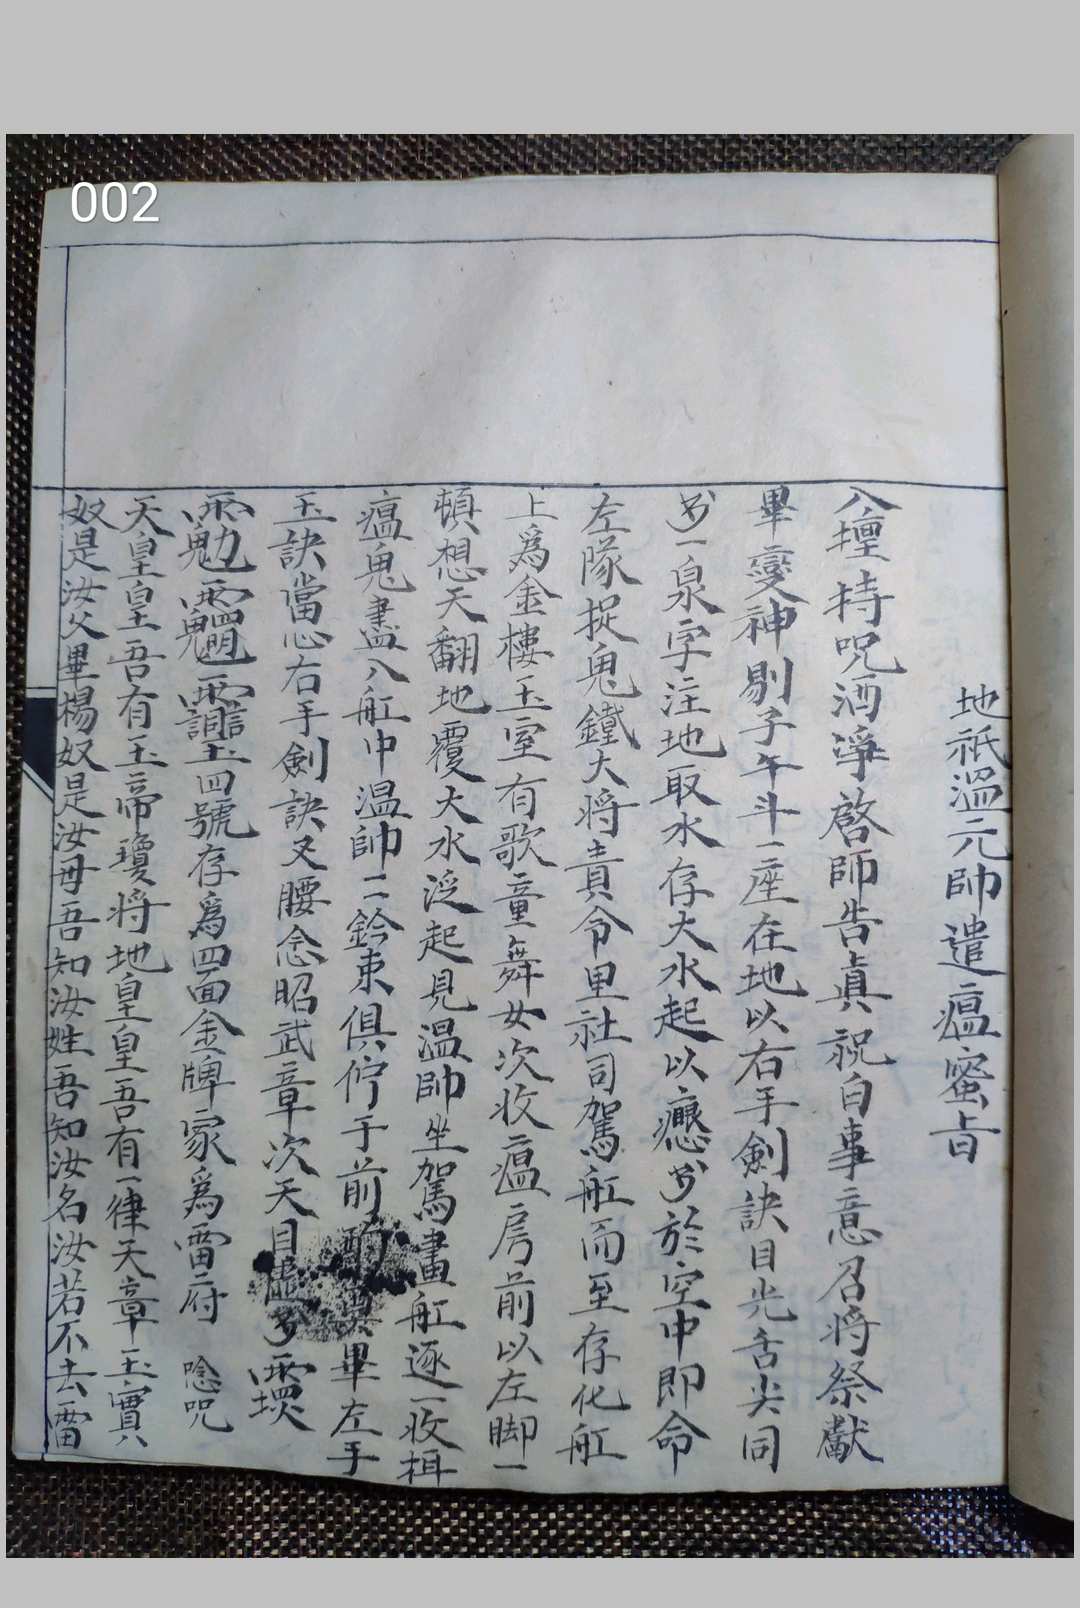 002
地祇溫元帥遣瘟蜜旨
入壇持呪酒淨啓師告眞祝白事意召將祭獻
畢變神剔子午斗一座在地以右手劍訣目光舌尖同
歩一泉字注地取水存大水起以歩於空中即命
左隊捉鬼鐵大將責令里社司駕舡而至存化舡
上爲金樓玉室有歌童舞女次收瘟房前以左脚一
頓想天翻地覆大水泛起見溫帥坐駕畫舡逐一收捉
瘟鬼盡入舡中溫帥二鈴束俱佇于前畢左手
玉訣當心右手劍訣叉腰念昭武章次天目
四號存爲四面金牌家爲雷府 唸呪
天皇皇吾有玉帝瓊將地皇皇吾有一律天章玉實
奴是汝父畢楊奴是汝母吾知汝姓吾知汝名汝若不去雷